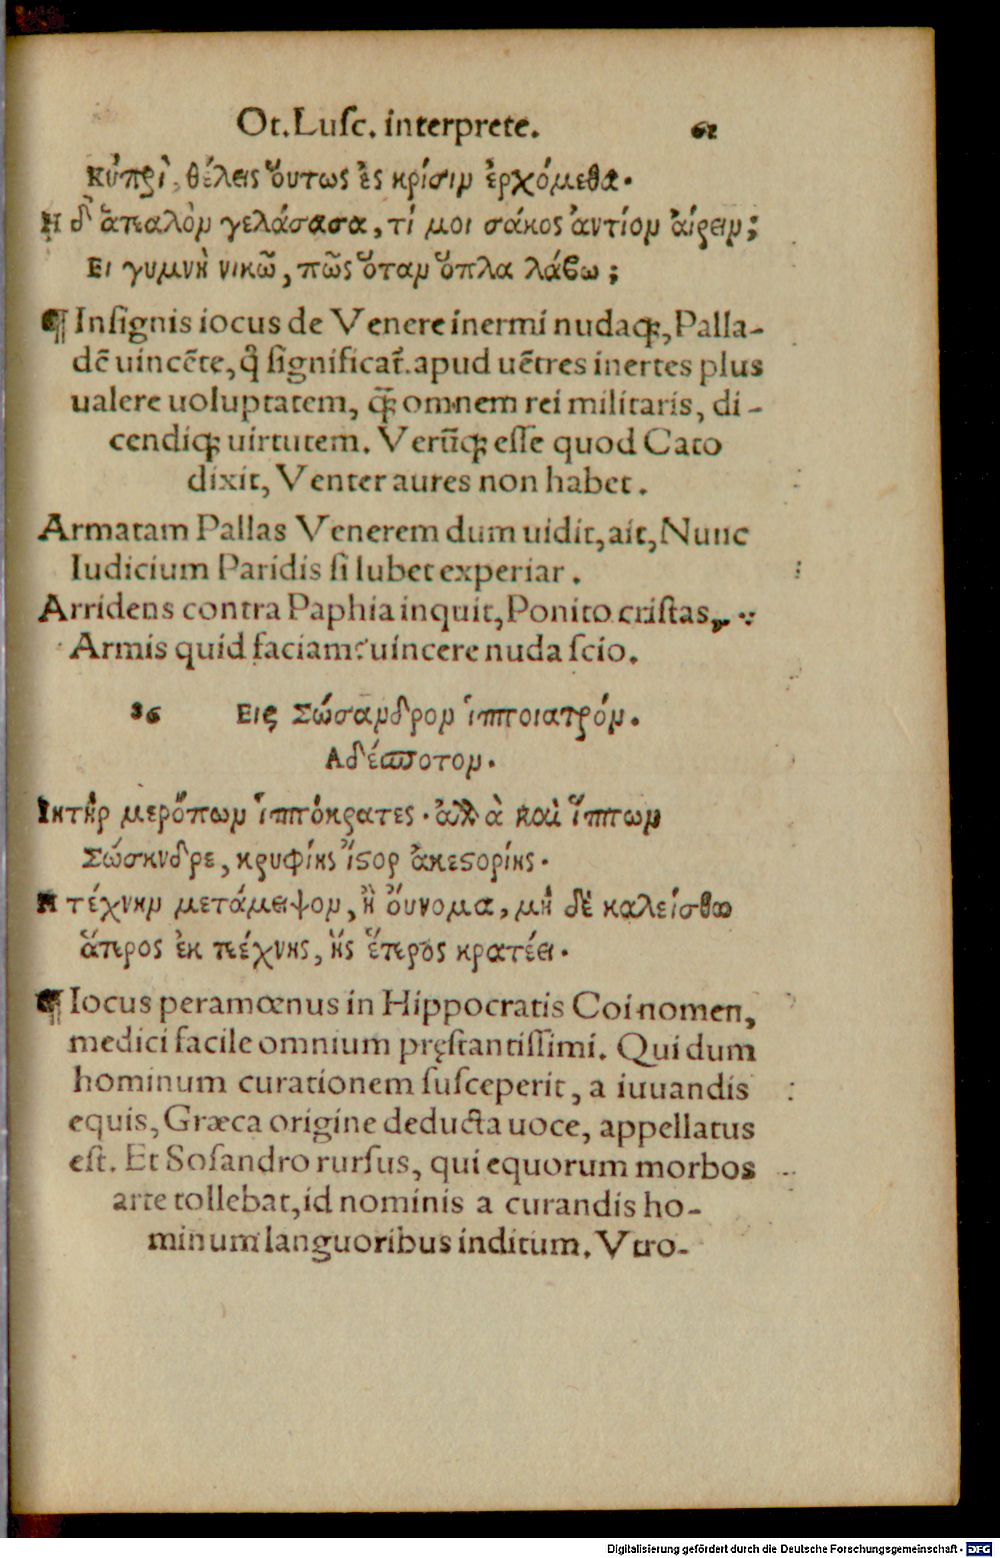 Ot. Lusc. interprete. 61
Κύπρι, θέλεις οὕτως ἐς κρίσιν ἐρχόμεθα.
Η δ' ἁπαλὸν γελάσασα, τί μοι σάκος ἀντίον αἴρειν;
Ει γυμνὴ νικῶ, πῶς ὅταν ὅπλα λάβω;
¶ Insignis iocus de Venere inermi nudaq́;, Palla-
dē uincēte, q̄ significat̄. apud uētres inertes plus
ualere uoluptatem, q̄; omnem rei militaris, di-
cendiq́; uirtutem. Verūq́; esse quod Cato
dixit, Venter aures non habet.
Armatam Pallas Venerem dum uidit, ait, Nunc
Iudicium Paridis si lubet experiar.
Arridens contra Paphia inquit, Ponito cristas,
Armis quid faciam? uincere nuda scio.
36 Εις Σώσανδρον ἱπποιατρόν.
Αδέσποτον.
Ιητὴρ μερόπων ἱππόκρατες. ἀλλὰ καὶ ἵππων
Σώσανδρε, κρυφίης ἵστορ ἀκεστορίης.
Η τέχνην μετάμειψον, ἢ οὔνομα, μὴ δὲ καλείσθω
ἅτερος ἐκ τέχνης, ἧς ἕτερος κρατέει.
¶ Iocus peramœnus in Hippocratis Coi nomen,
medici facile omnium pręstantissimi. Qui dum
hominum curationem susceperit, a iuuandis
equis, Græca origine deducta uoce, appellatus
est. Et Sosandro rursus, qui equorum morbos
arte tollebat, id nominis a curandis ho-
minum languoribus inditum. Vtro-
Digitalisierung gefördert durch die Deutsche Forschungsgemeinschaft - DFG